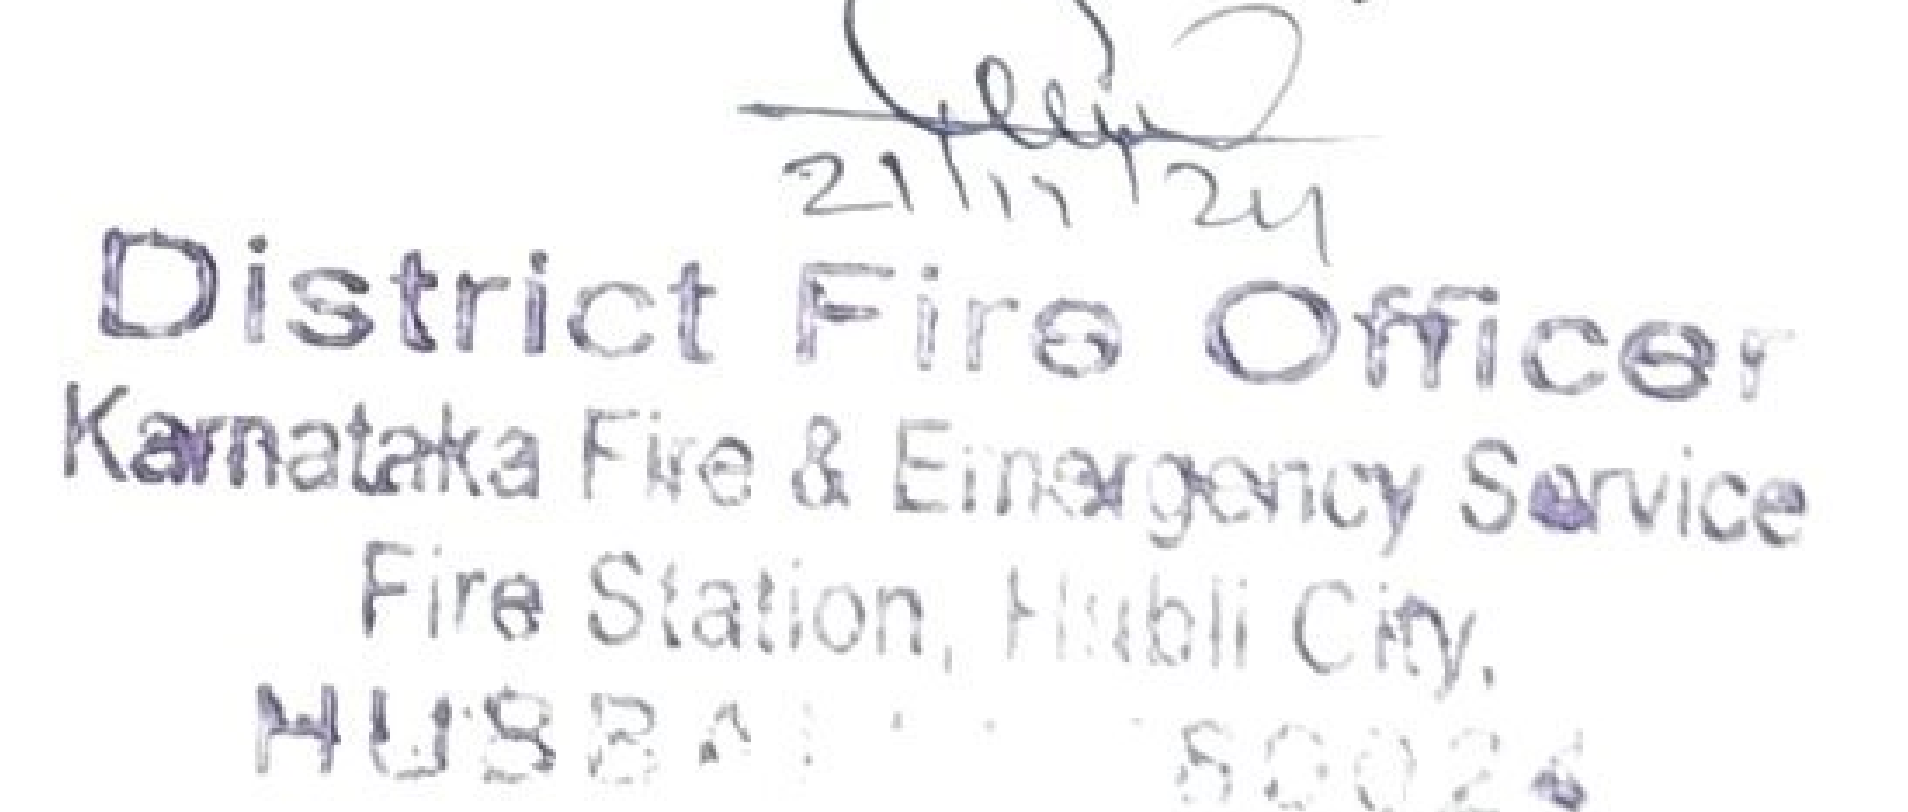 21/11/24
District Fire Officer
Karnataka Fire & Emergency Service
Fire Station, Hubli City,